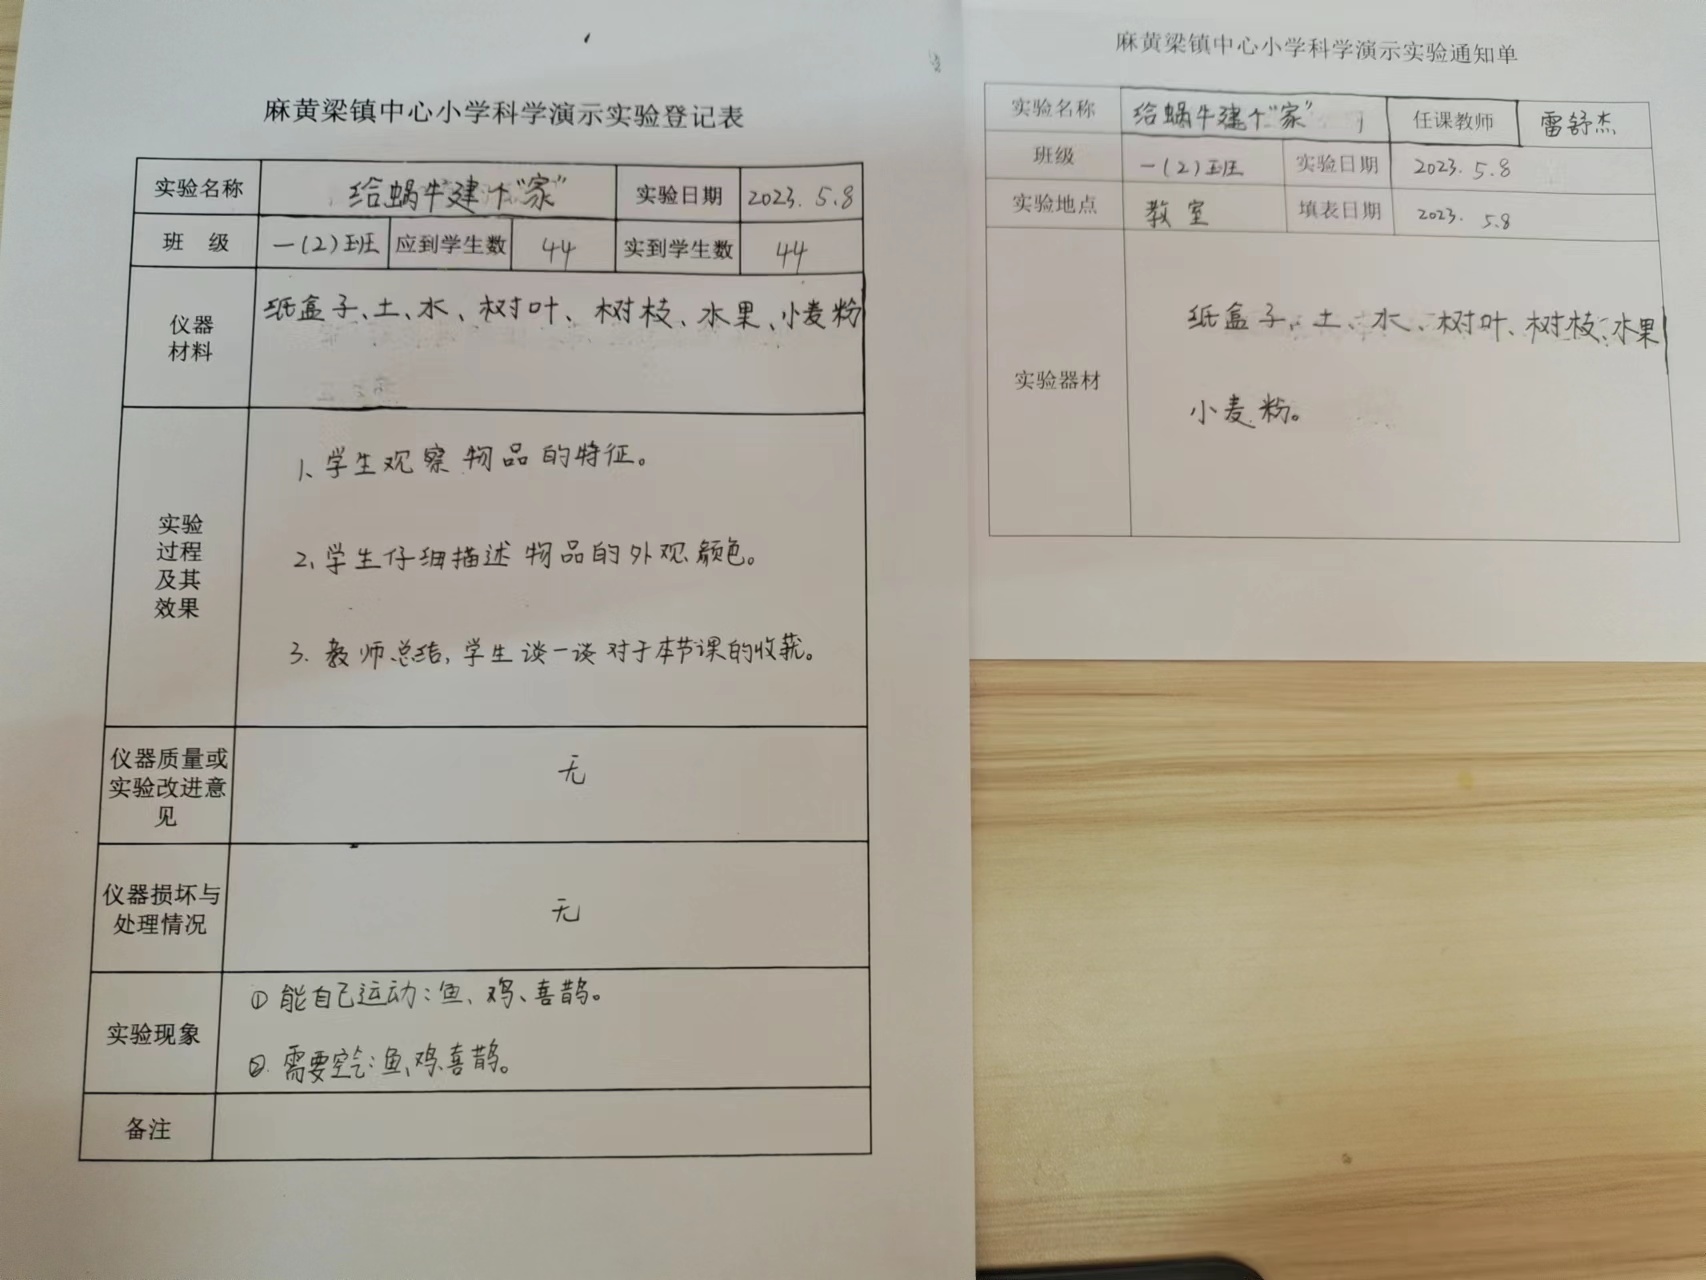 麻黄梁镇中心小学科学演示实验登记表
实验名称 给蜗牛建个“家” 实验日期 2023. 5.8
班 级 一(2)班 应到学生数 44 实到学生数 44
仪器
材料
纸盒子、土、水、树叶、树枝、水果、小麦粉
实验
过程
及其
效果
1、学生观察物品的特征。
2、学生仔细描述物品的外观颜色。
3. 教师总结,学生谈一谈对于本节课的收获。
仪器质量或
实验改进意
见
无
仪器损坏与
处理情况
无
实验现象
① 能自己运动:鱼、鸡、喜鹊。
②. 需要空气:鱼、鸡、喜鹊。
备注
麻黄梁镇中心小学科学演示实验通知单
实验名称 给蜗牛建个“家” 任课教师 雷舒杰
班级 一(2)班 实验日期 2023. 5.8
实验地点 教室 填表日期 2023. 5.8
实验器材
纸盒子、土、水、树叶、树枝、水果
小麦粉。